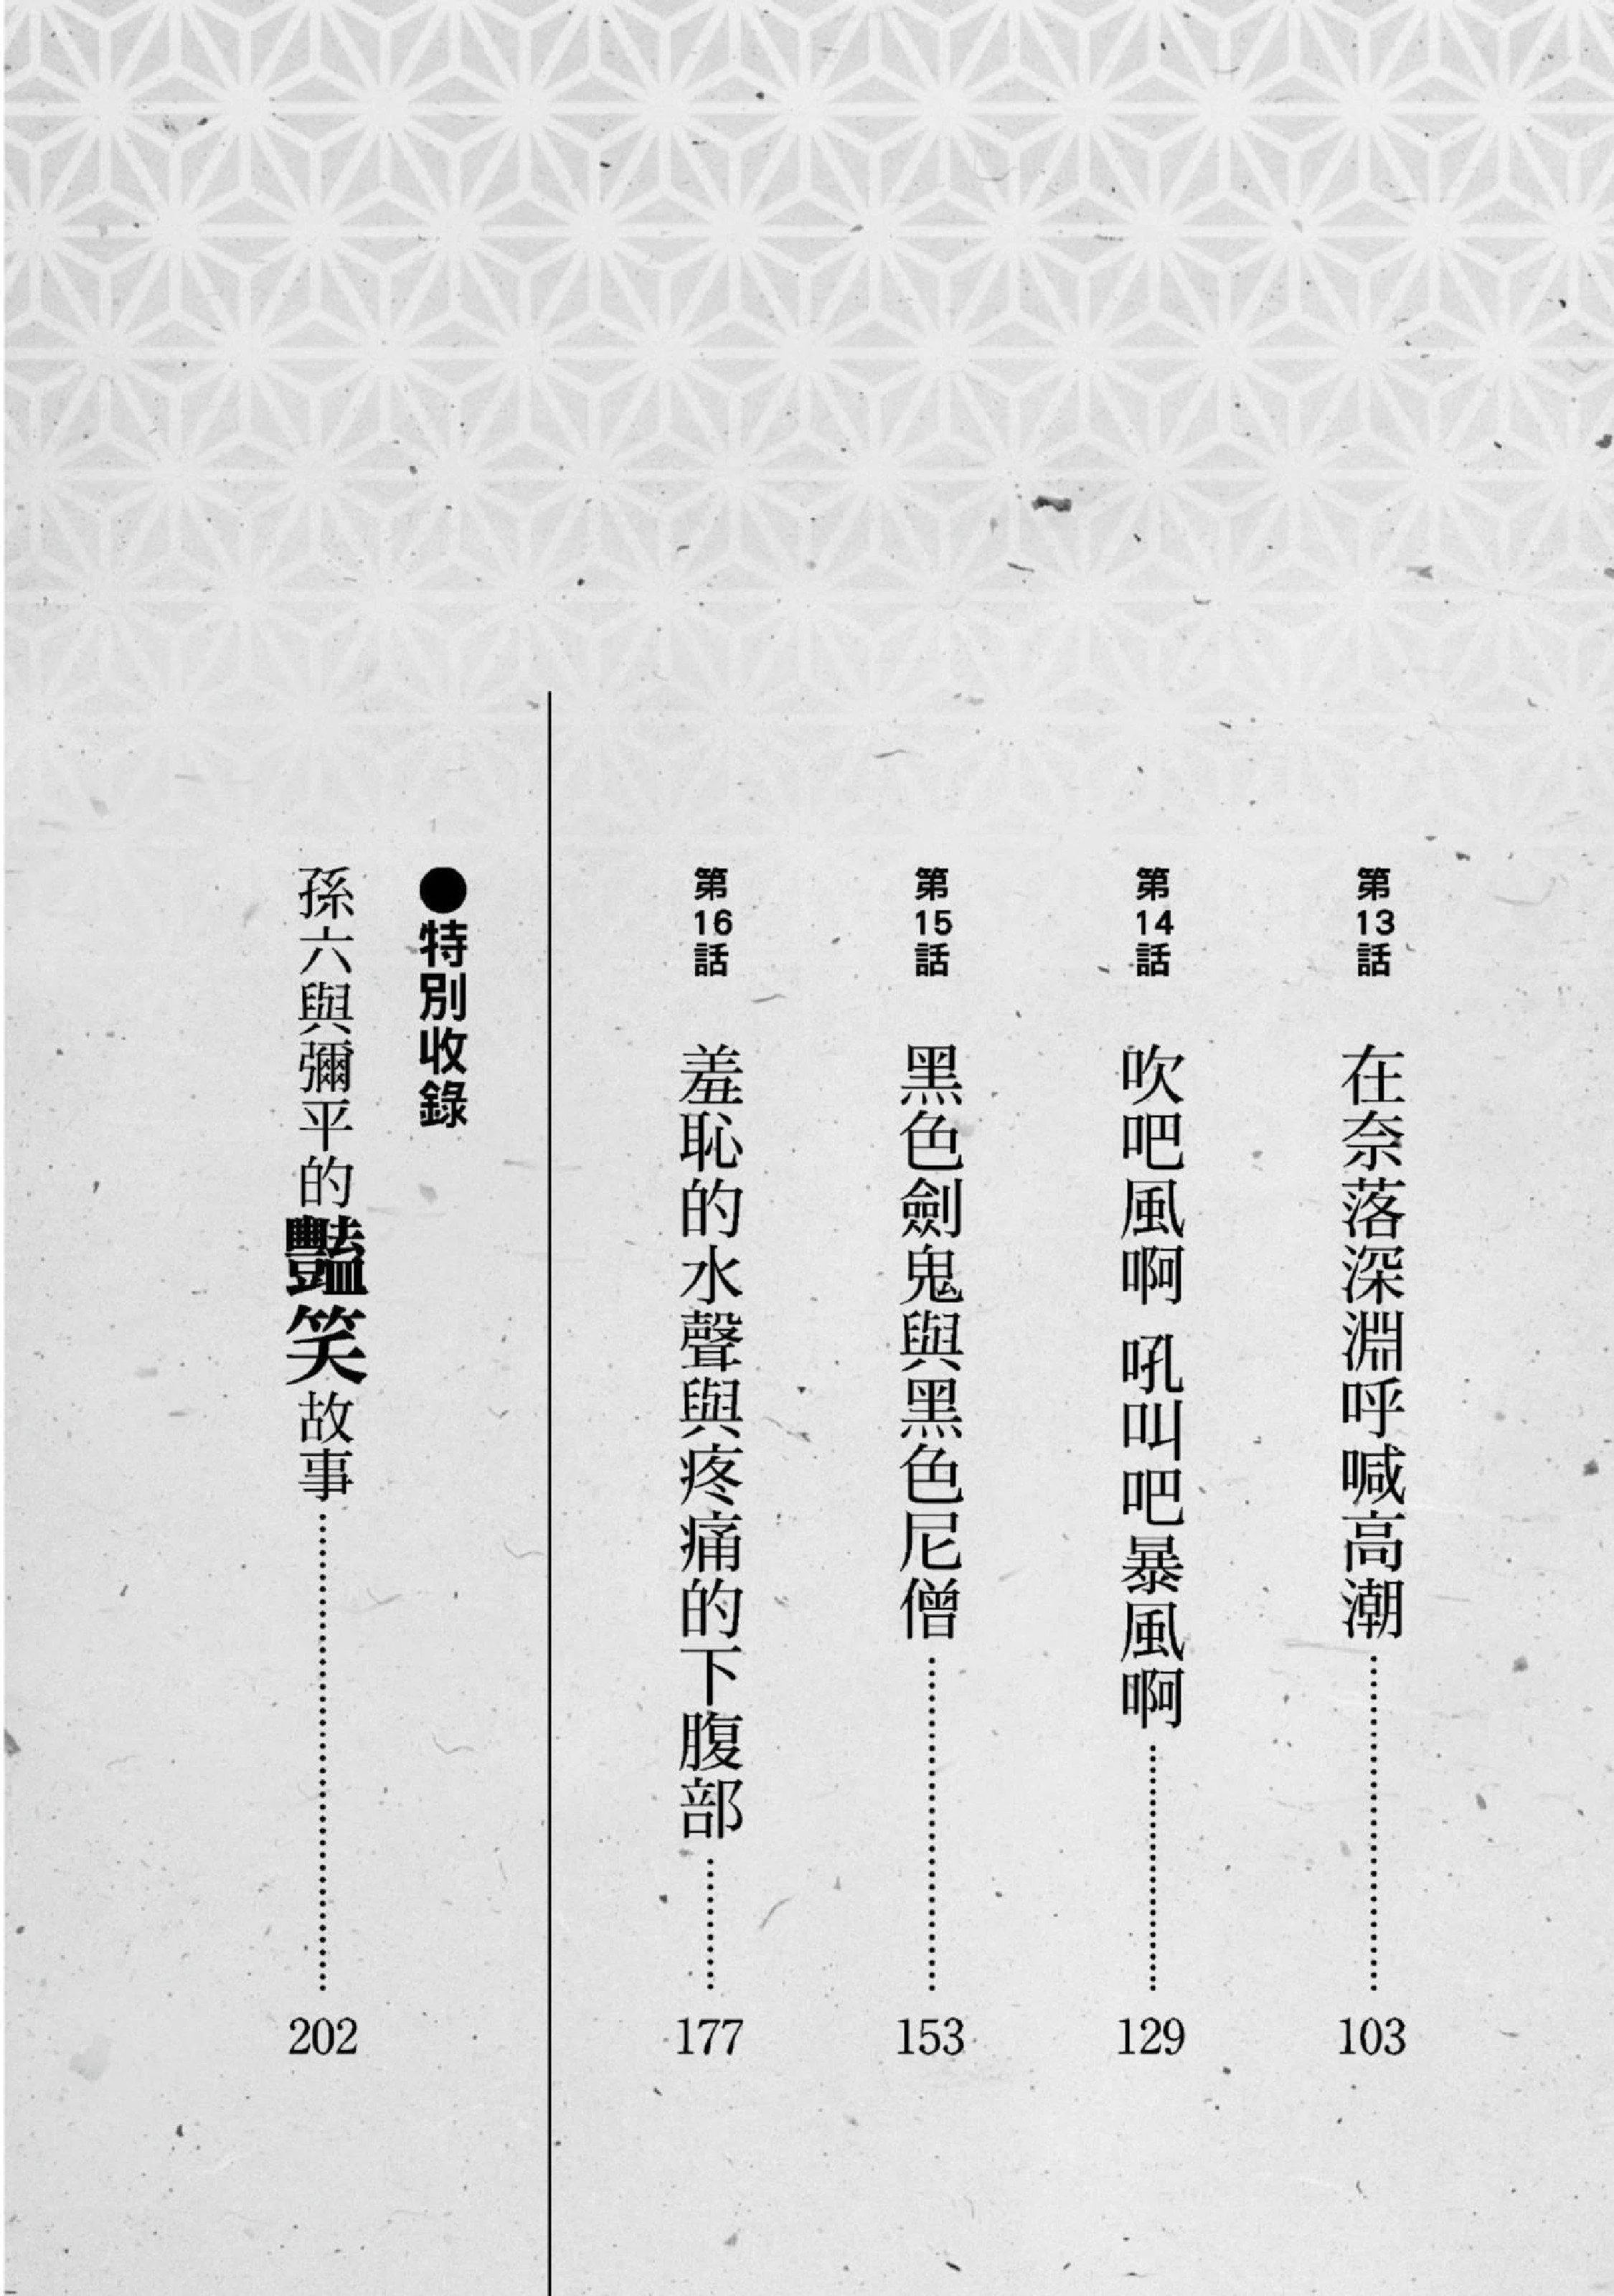 第13話 在奈落深淵呼喊高潮……103
第14話 吹吧風啊 吼叫吧暴風啊……129
第15話 黑色劍鬼與黑色尼僧……153
第16話 羞恥的水聲與疼痛的下腹部……177
●特別收錄
孫六與彌平的豔笑故事……202